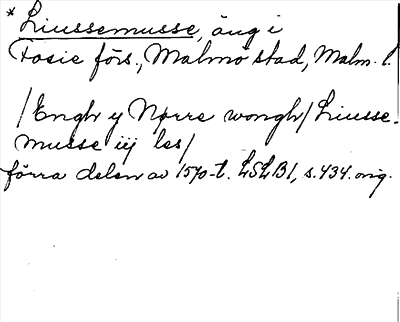 * Liussemusse, äng i
Fosie förs., Malmö stad, Malm. l.
/Engh y Nørre wongh/Liusse-
musse iij les/
förra delen av 1570-t. LSLB1, s.434. orig.